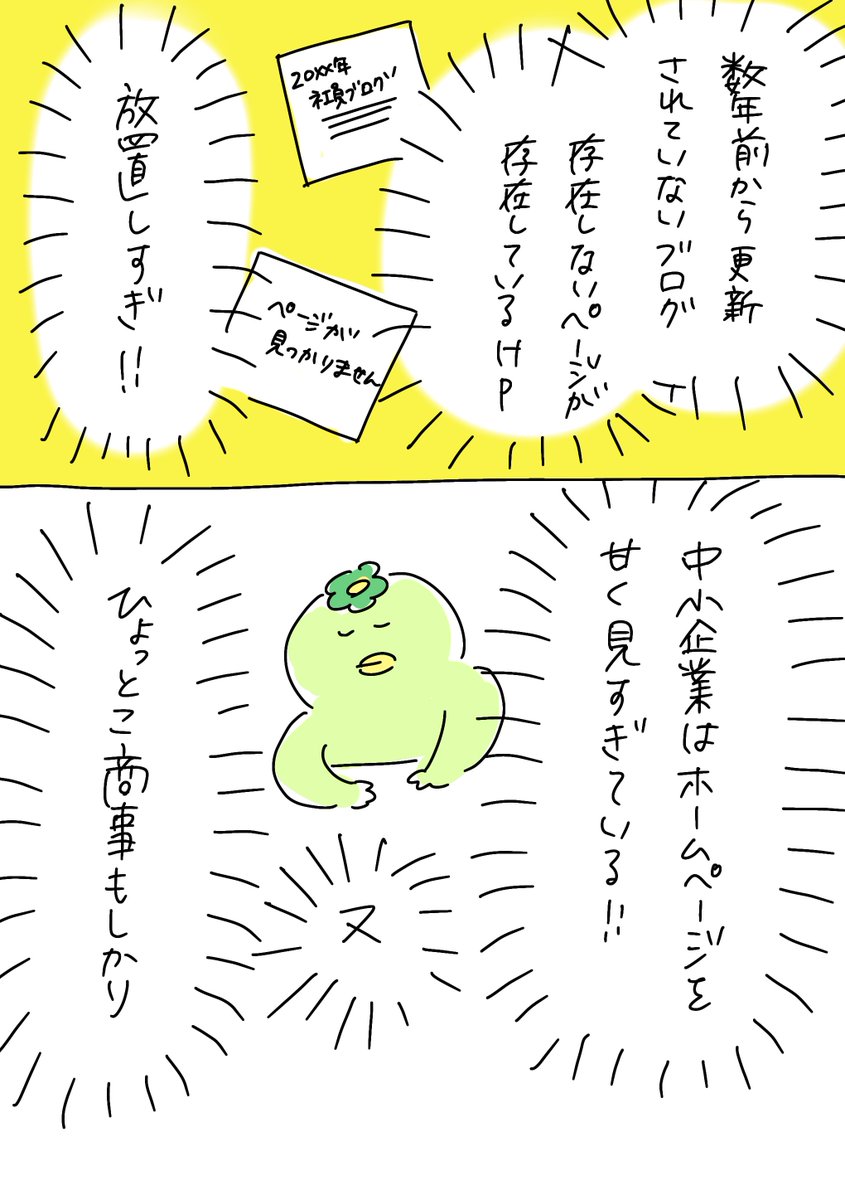 数年前から更新
されていないブログ
存在しないページが
存在しているHP
20xx年
社員ブログ
ページが
見つかりません
放置しすぎ!!
中小企業はホームページを
甘く見すぎている!!
ヌ
ひょっとこ商事もしかり